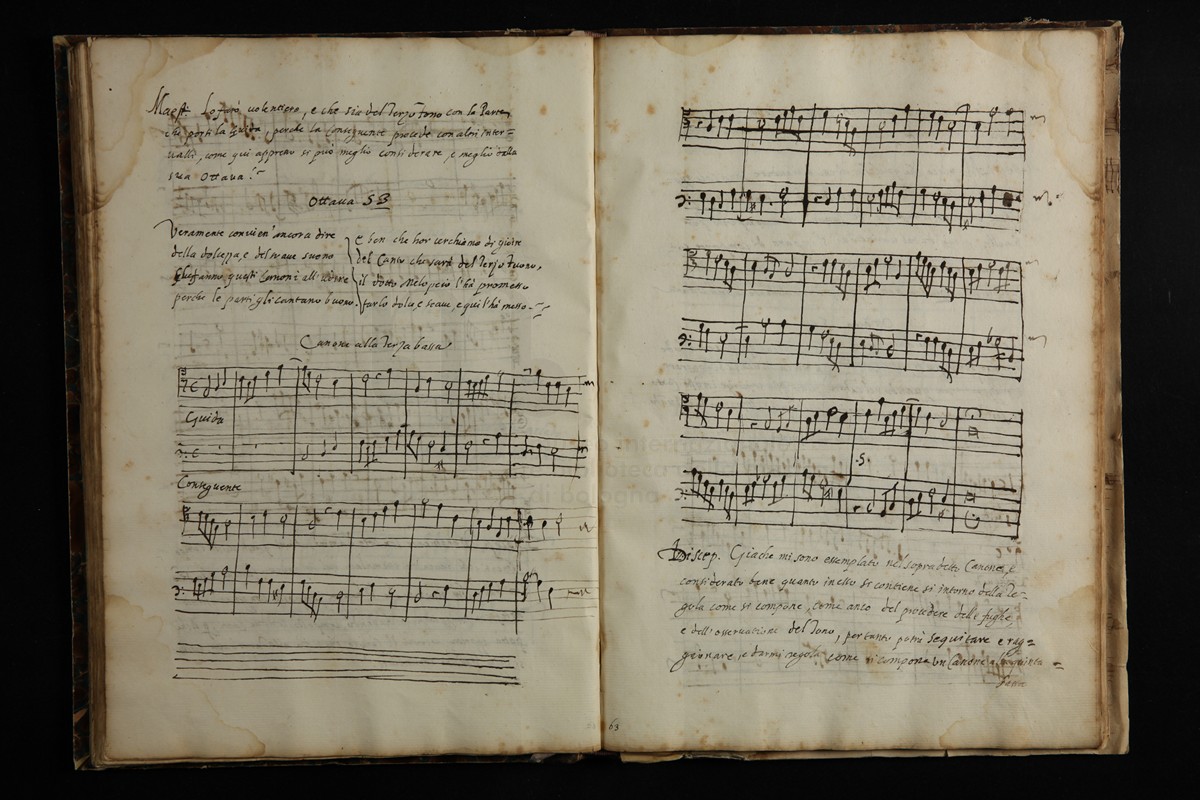 Maest. Lo farò volentiero, e che sia del Terzo tono con la Parte,
che porti la Guida, perche la Conseguente procede con altri inter=
ualli, come qui appresso si può meglio considerare, e meglio dalla
sua Ottaua.
Ottaua 53
Veramente convien' ancora dire
della dolcezza, e del soaue suono
questi Canoni all' udire
perche le parti gli cantano buono.
E ben che hor cerchiamo di gioire
del Canto che sarà del Terzo tuono,
il dotto Melopeio l'hà promesso
farlo dolce, e soaue, e qui l'hà messo.
Canone alla Terza bassa
Guida
Conseguente
.5.
Discep. Giache mi sono essemplato nel sopradetto Canone, e
considerato bene quanto in esso si contiene si intorno della Re=
gola come si compone, come anco del procedere delle fughe,
e dell' osseruatione del Tono, per tanto potrà seguitare e rag=
gionare, e darmi regola come si compona un Canone a la quinta
63